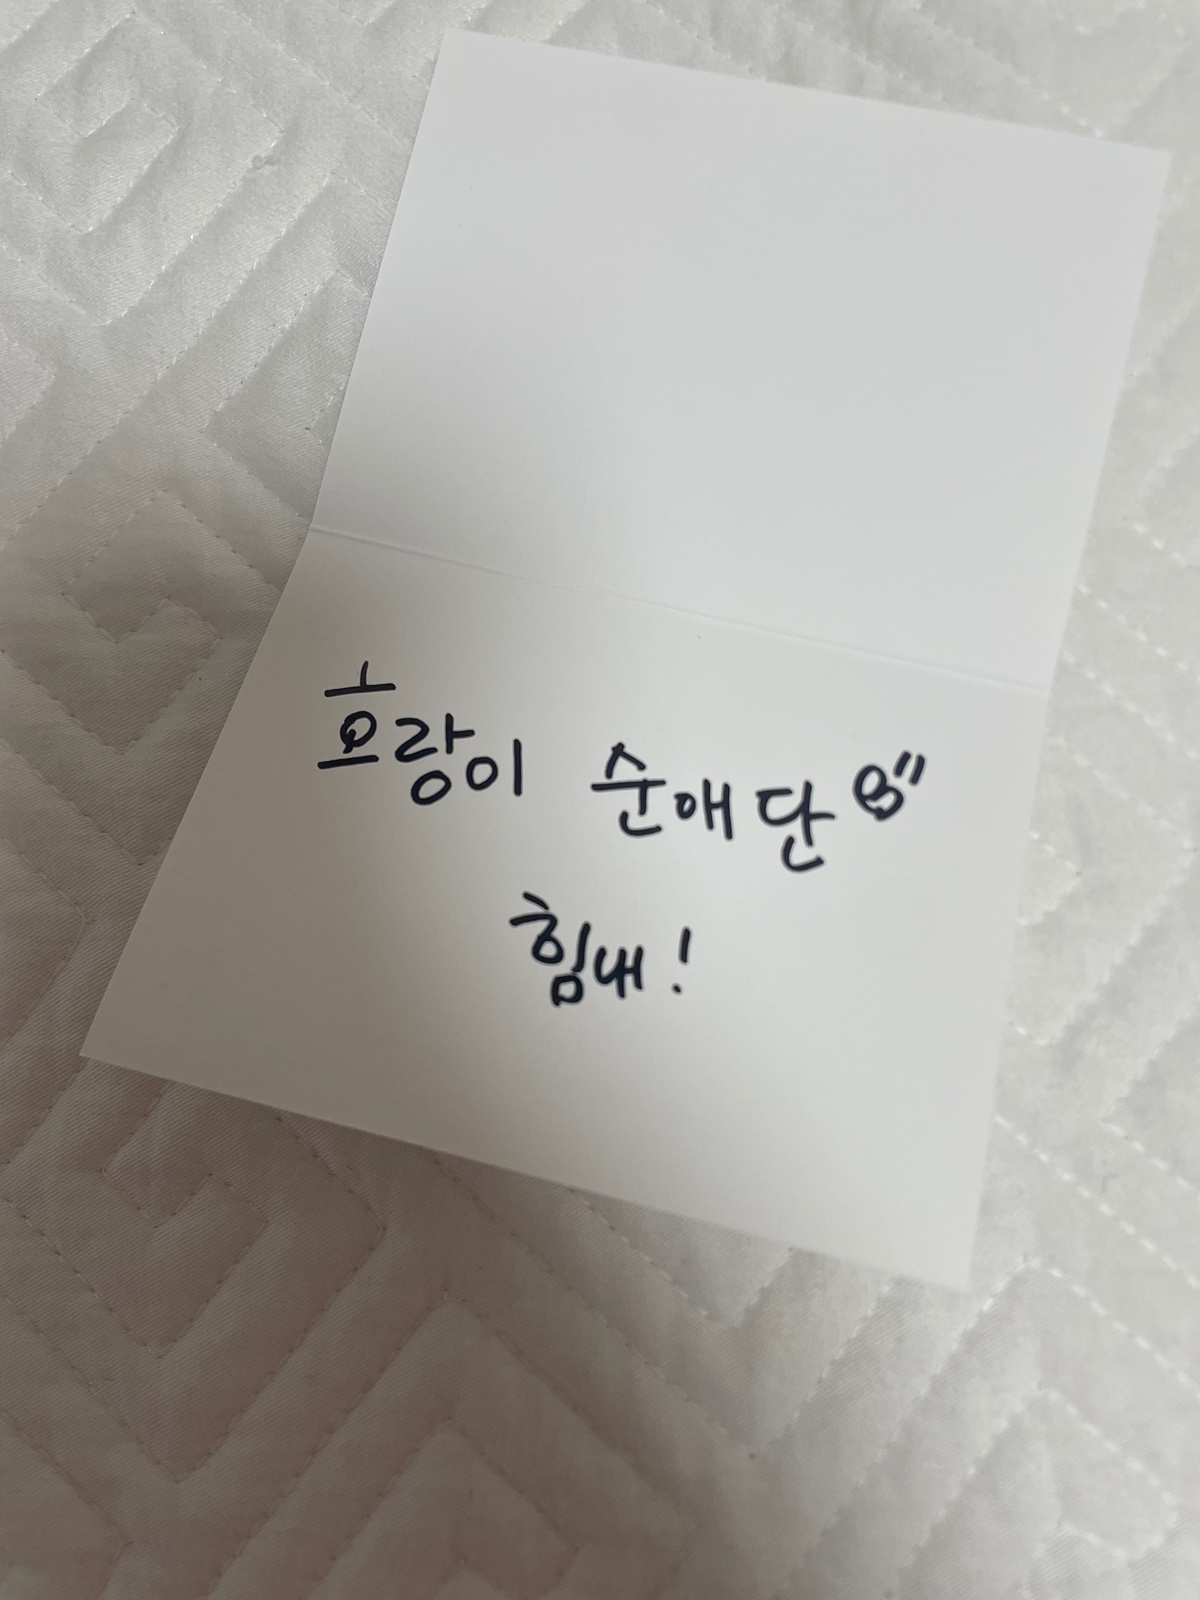 호랑이 순애단
힘내!